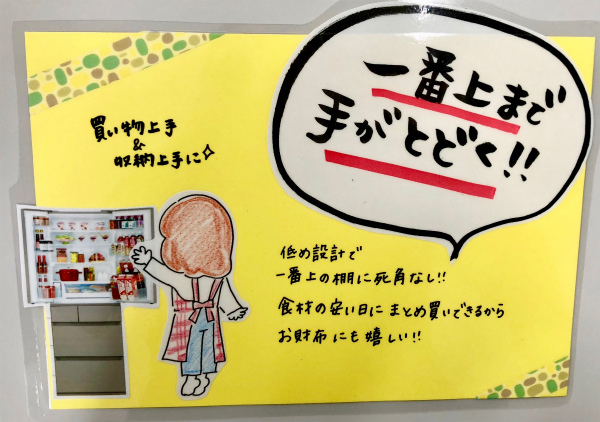 一番上まで
手がとどく!!
買い物上手
&
収納上手に
低め設計で
一番上の棚に死角なし!!
食材の安い日にまとめ買いできるから
お財布にも嬉しい!!